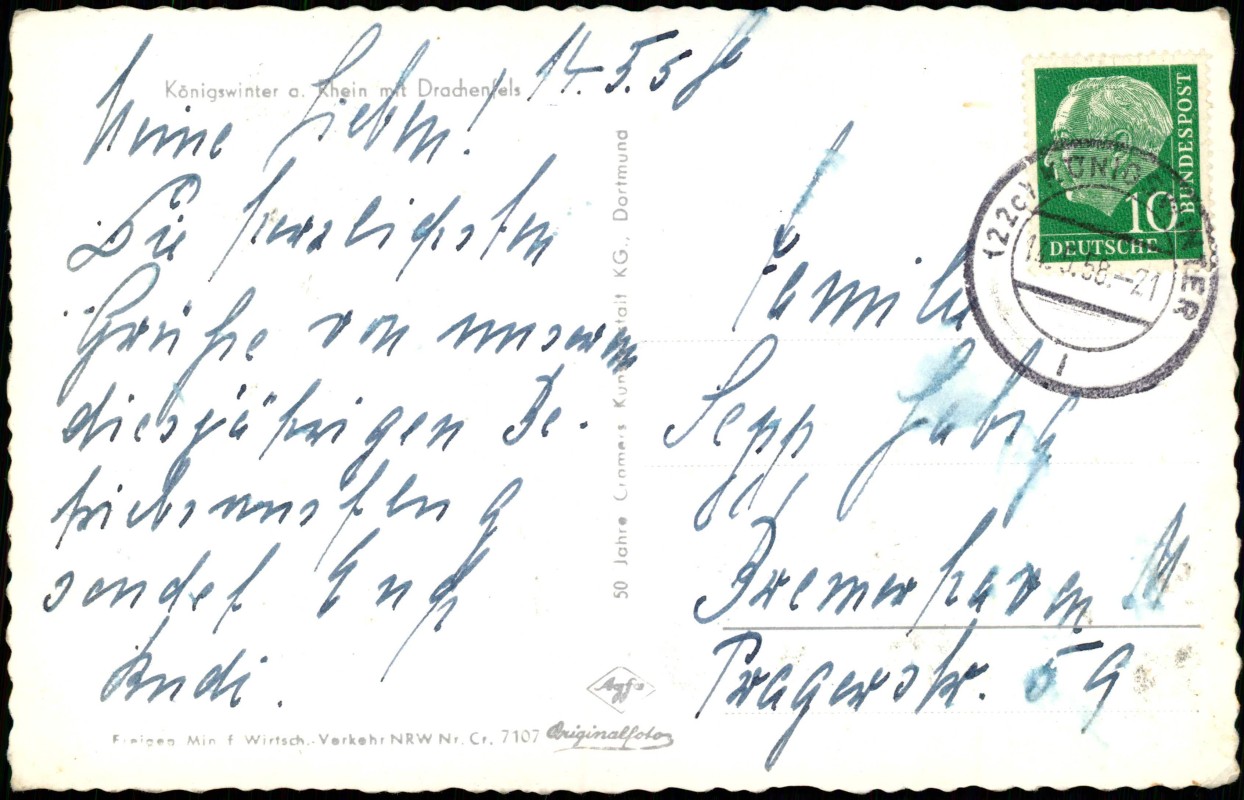 Königswinter a. Rhein mit Drachenfels
14.5.58
Meine Lieben!
Die herzlichsten
Grüße von unserem
diesjährigen Be-
triebsausflug
sendet Euch
Andi.
Freigeg. Min. f. Wirtsch.-Verkehr NRW Nr. Cr. 7107
Agfa
Originalfoto
50 Jahre Cramers Kunstanstalt KG., Dortmund
DEUTSCHE BUNDESPOST
10
(22c) KÖNIGSWINTER
14.5.58.-21
1
Familie
Sepp
Bremerhaven M
Pragerstr. 59